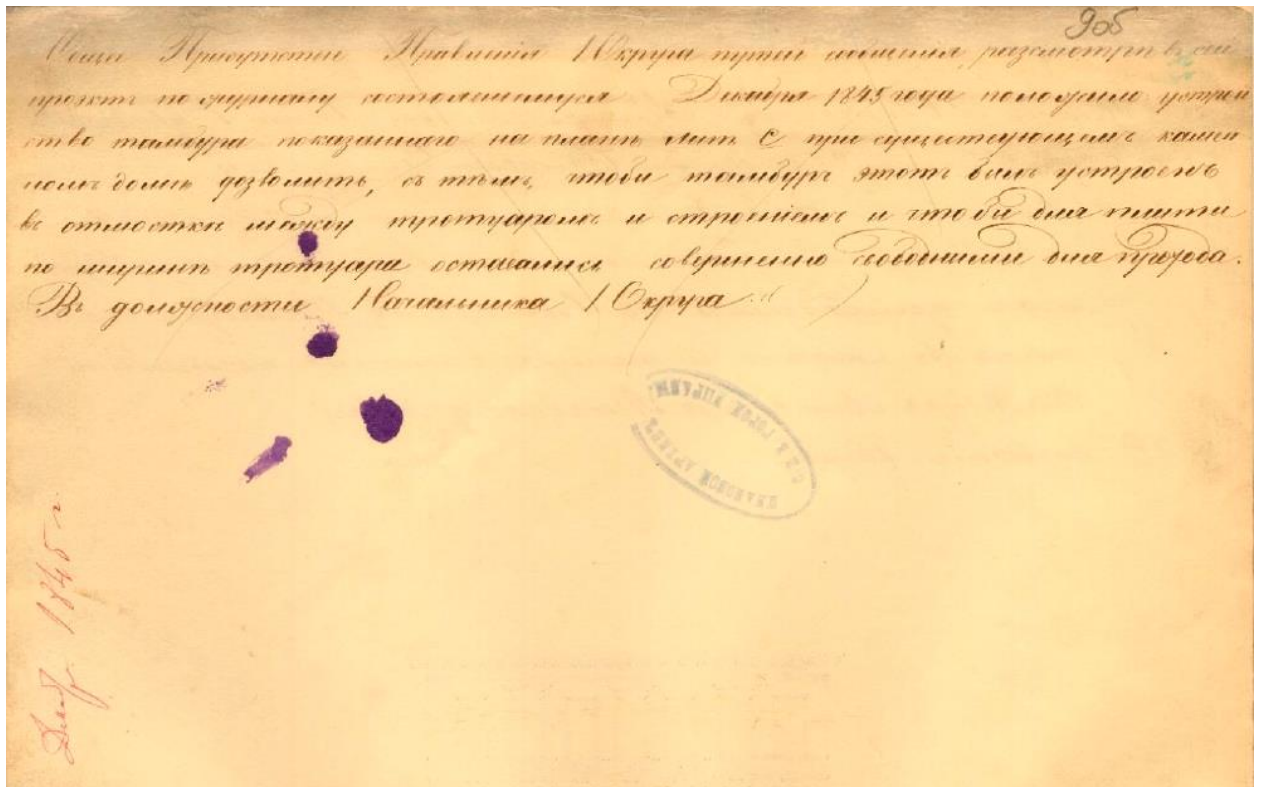 905
Общее Присутствіе Правленія I Округа путей сообщенія, разсмотрѣвъ сей
проэктъ по журналу состоявшемуся Декабря 1845 года положило устрой
ство тамбура показаннаго на планѣ лит С при существующемъ камен
номъ домѣ дозволить, съ тѣмъ, чтобы тамбуръ этотъ былъ устроенъ
въ отмосткѣ между тротуаромъ и строеніемъ и чтобы двѣ плиты
по ширинѣ тротуара оставались совершенно свободными для прохода.
Въ должности Начальника I Округа
ПЛАНОВОЙ АРХИВЪ
С.П.Б. ГОРОД. УПРАВЫ
Декабр. 1845 г.